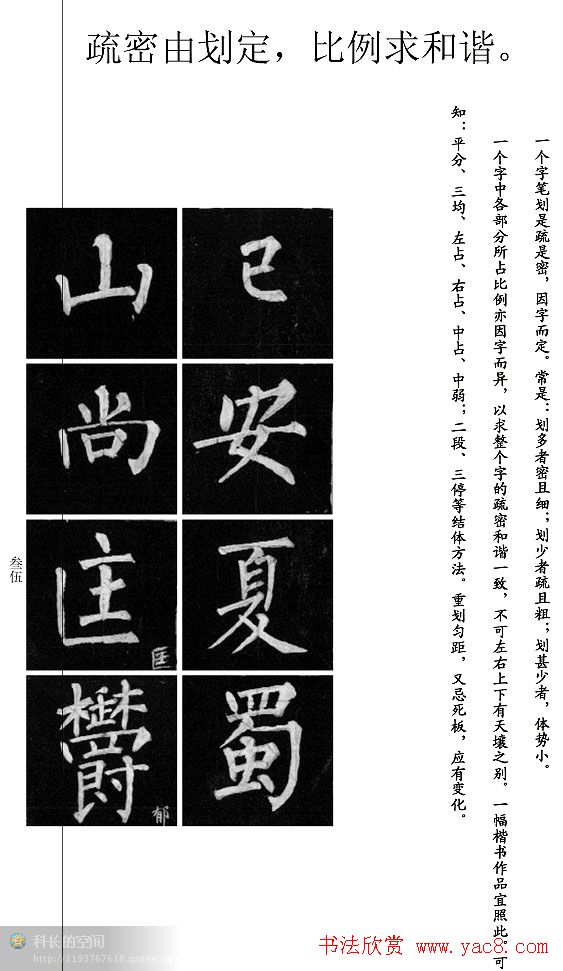 疏密由划定，比例求和谐。
一个字笔划是疏是密，因字而定。常是：划多者密且细；划少者疏且粗；划甚少者，体势小。
一个字中各部分所占比例亦因字而异，以求整个字的疏密和谐一致，不可左右上下有天壤之别。一幅楷书作品宜照此。可
知：平分、三均、左占、右占、中占、中弱；二段、三停等结体方法。重划匀距，又忌死板，应有变化。
已
安
夏
蜀
山
尚
匡
鬱
郁
叁伍
科长的空间
http://1193767618.qzone.qq.com
书法欣赏 www.yac8.com